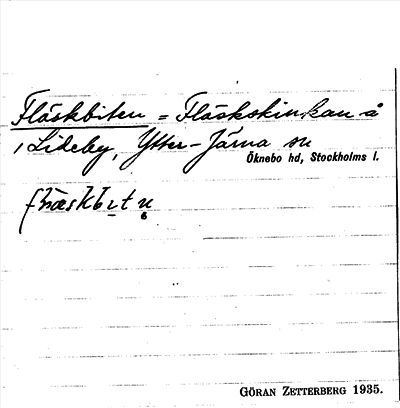 Fläskbiten = Fläskskinkan å
, Lideby, Ytter-Järna sn
Öknebo hd, Stockholms l.
GÖRAN ZETTERBERG 1935.